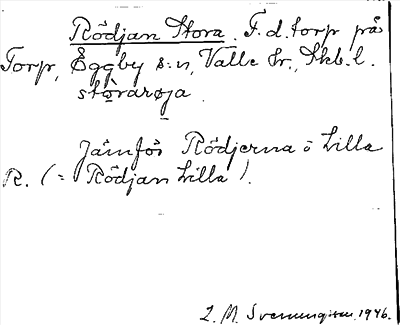 Rödjan Stora. F.d. torp på
Torp, Eggby s:n, Valle hr., Skb.l.
stòrarøja.
Jämför Rödjerna o Lilla
R. (= Rödjan Lilla).
L. M. Svenungsson. 1946.